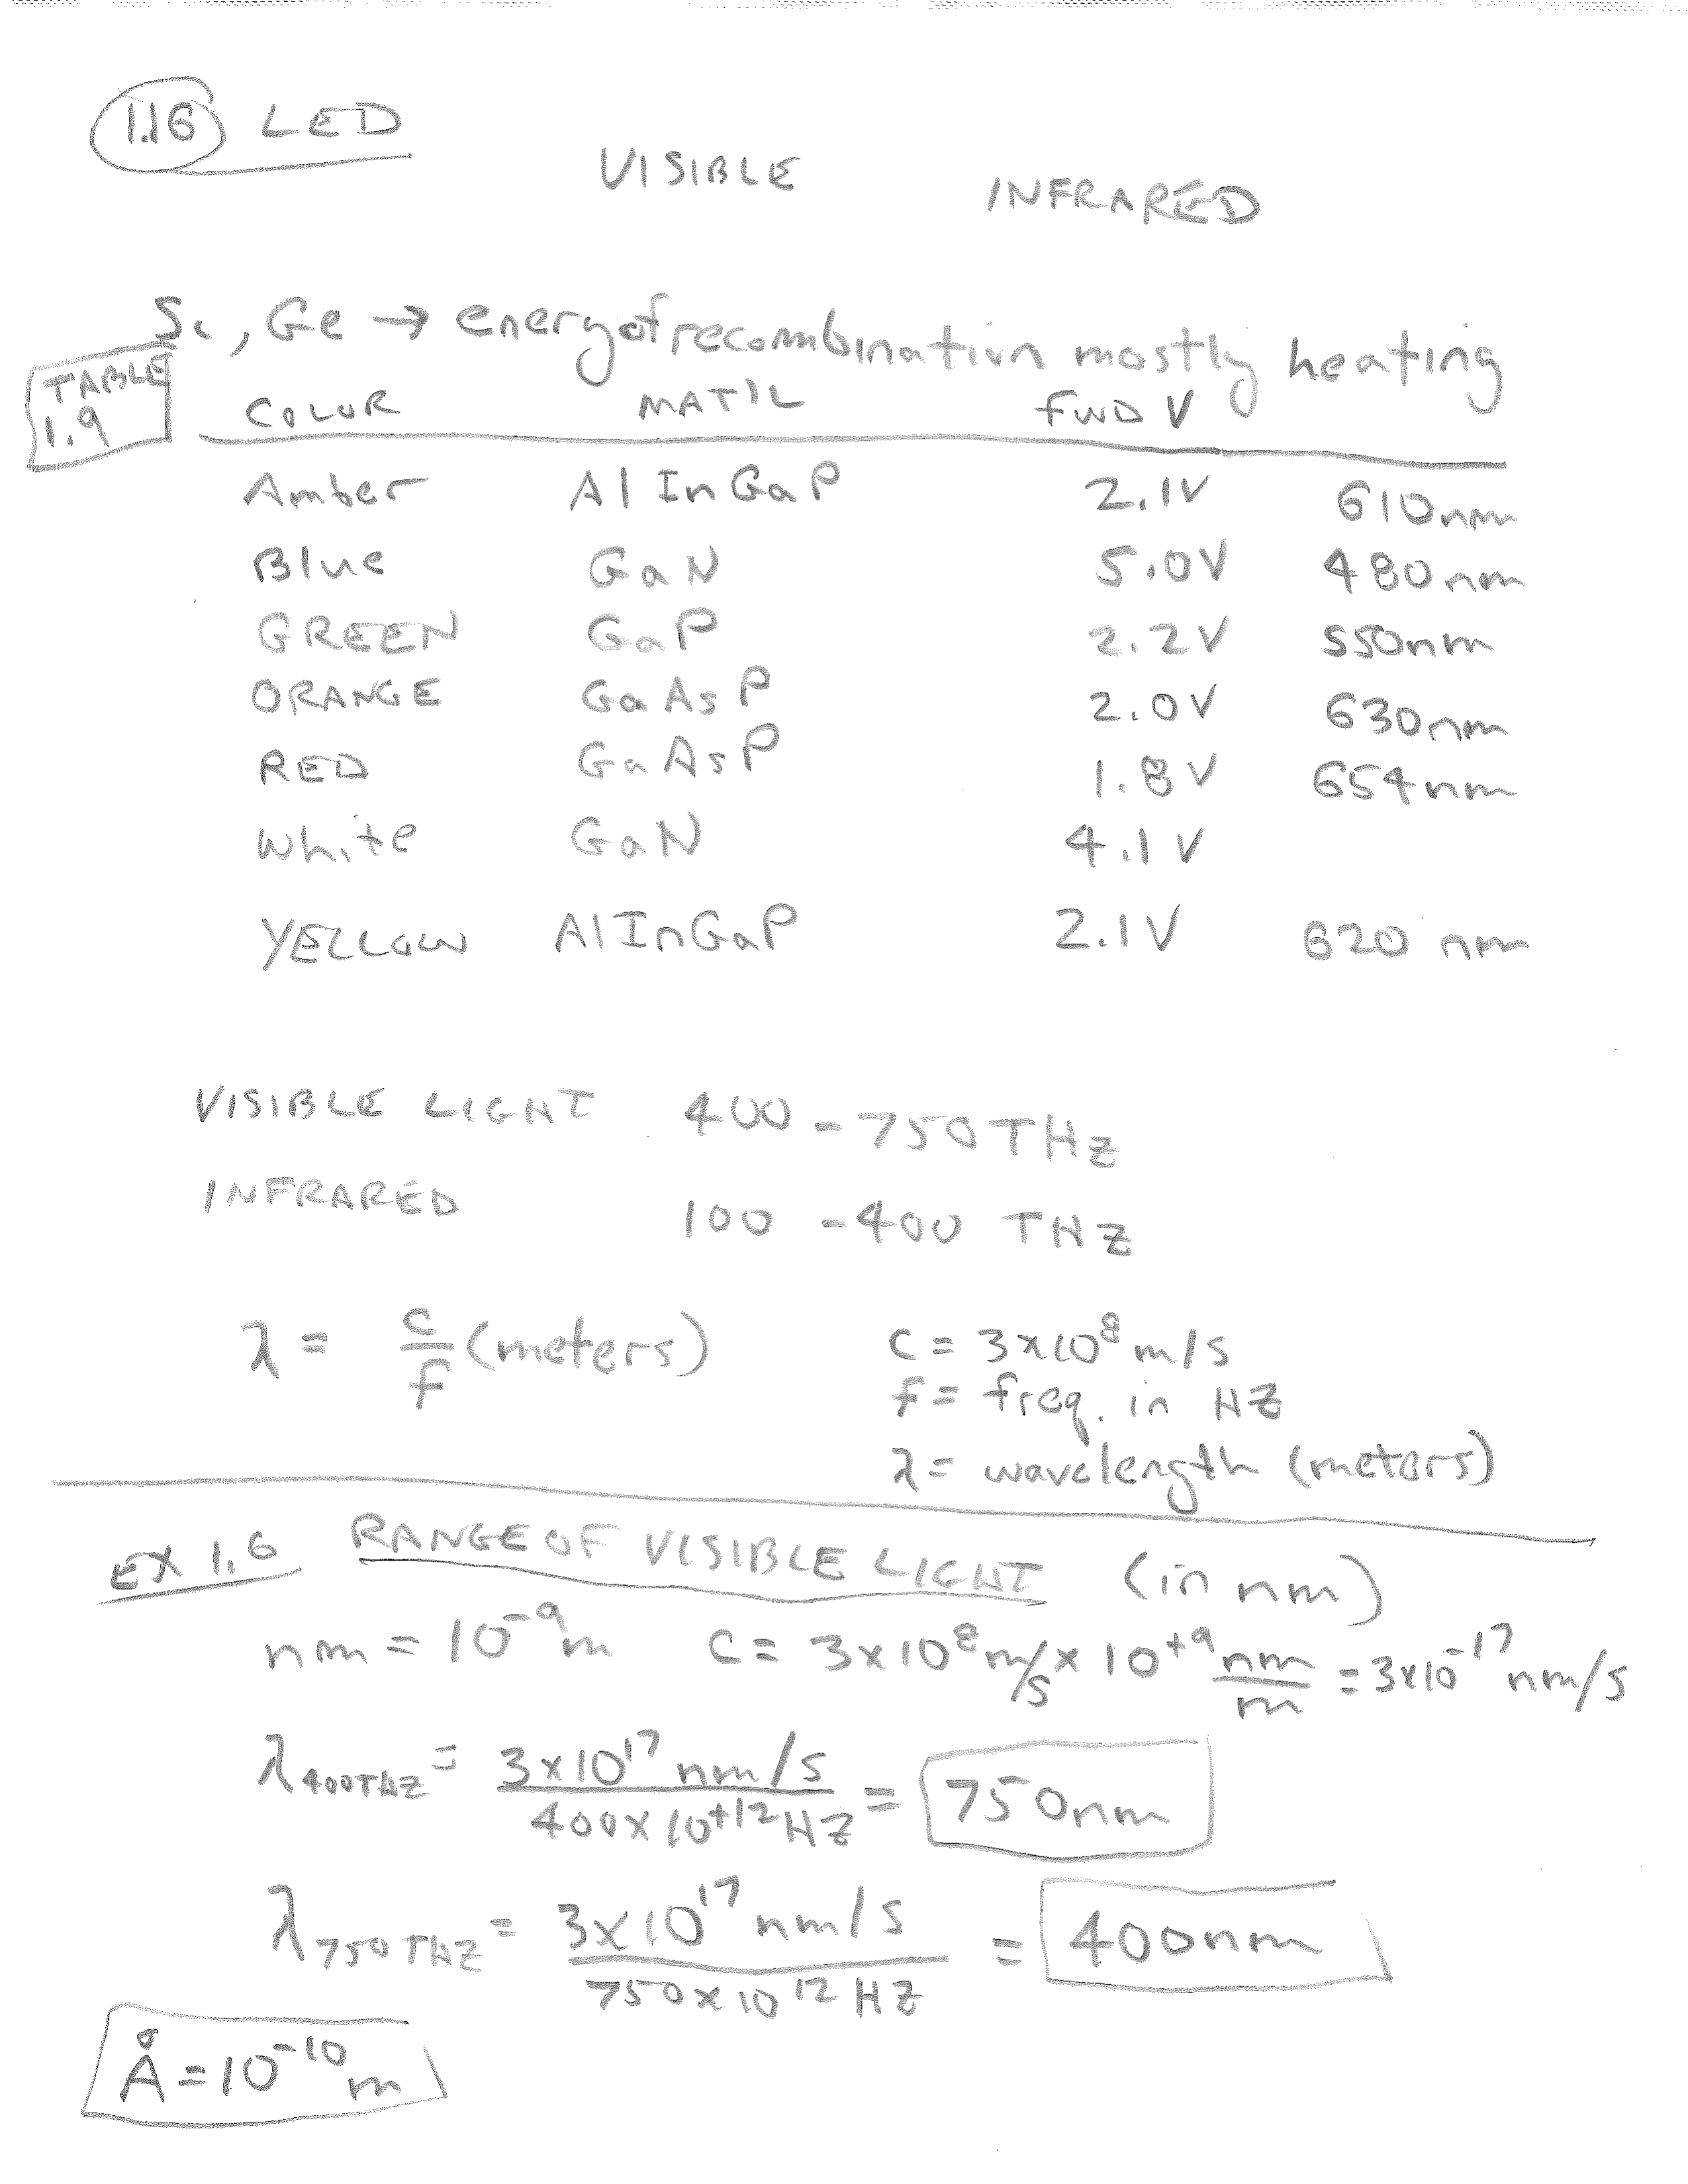 1.16 LED
VISIBLE INFRARED
Si, Ge → energy of recombination mostly heating
TABLE 1.9
COLOR MAT'L FWD V
Amber AlInGaP 2.1V 610nm
Blue GaN 5.0V 480nm
GREEN GaP 2.2V 550nm
ORANGE GaAsP 2.0V 630nm
RED GaAsP 1.8V 654nm
White GaN 4.1V
YELLOW AlInGaP 2.1V 620 nm
VISIBLE LIGHT 400 - 750 THz
INFRARED 100 - 400 THz
λ = c/f (meters) c = 3x10⁸ m/s
f = freq. in HZ
λ = wavelength (meters)
EX 1.6 RANGE OF VISIBLE LIGHT (in nm)
nm = 10⁻⁹m C = 3x10⁸ m/s x 10⁺⁹ nm/m = 3x10⁻¹⁷ nm/s
λ400THZ = 3x10¹⁷ nm/s / 400x10⁺¹²HZ = 750nm
λ750THZ = 3x10¹⁷ nm/s / 750x10¹² HZ = 400nm
Å = 10⁻¹⁰ m